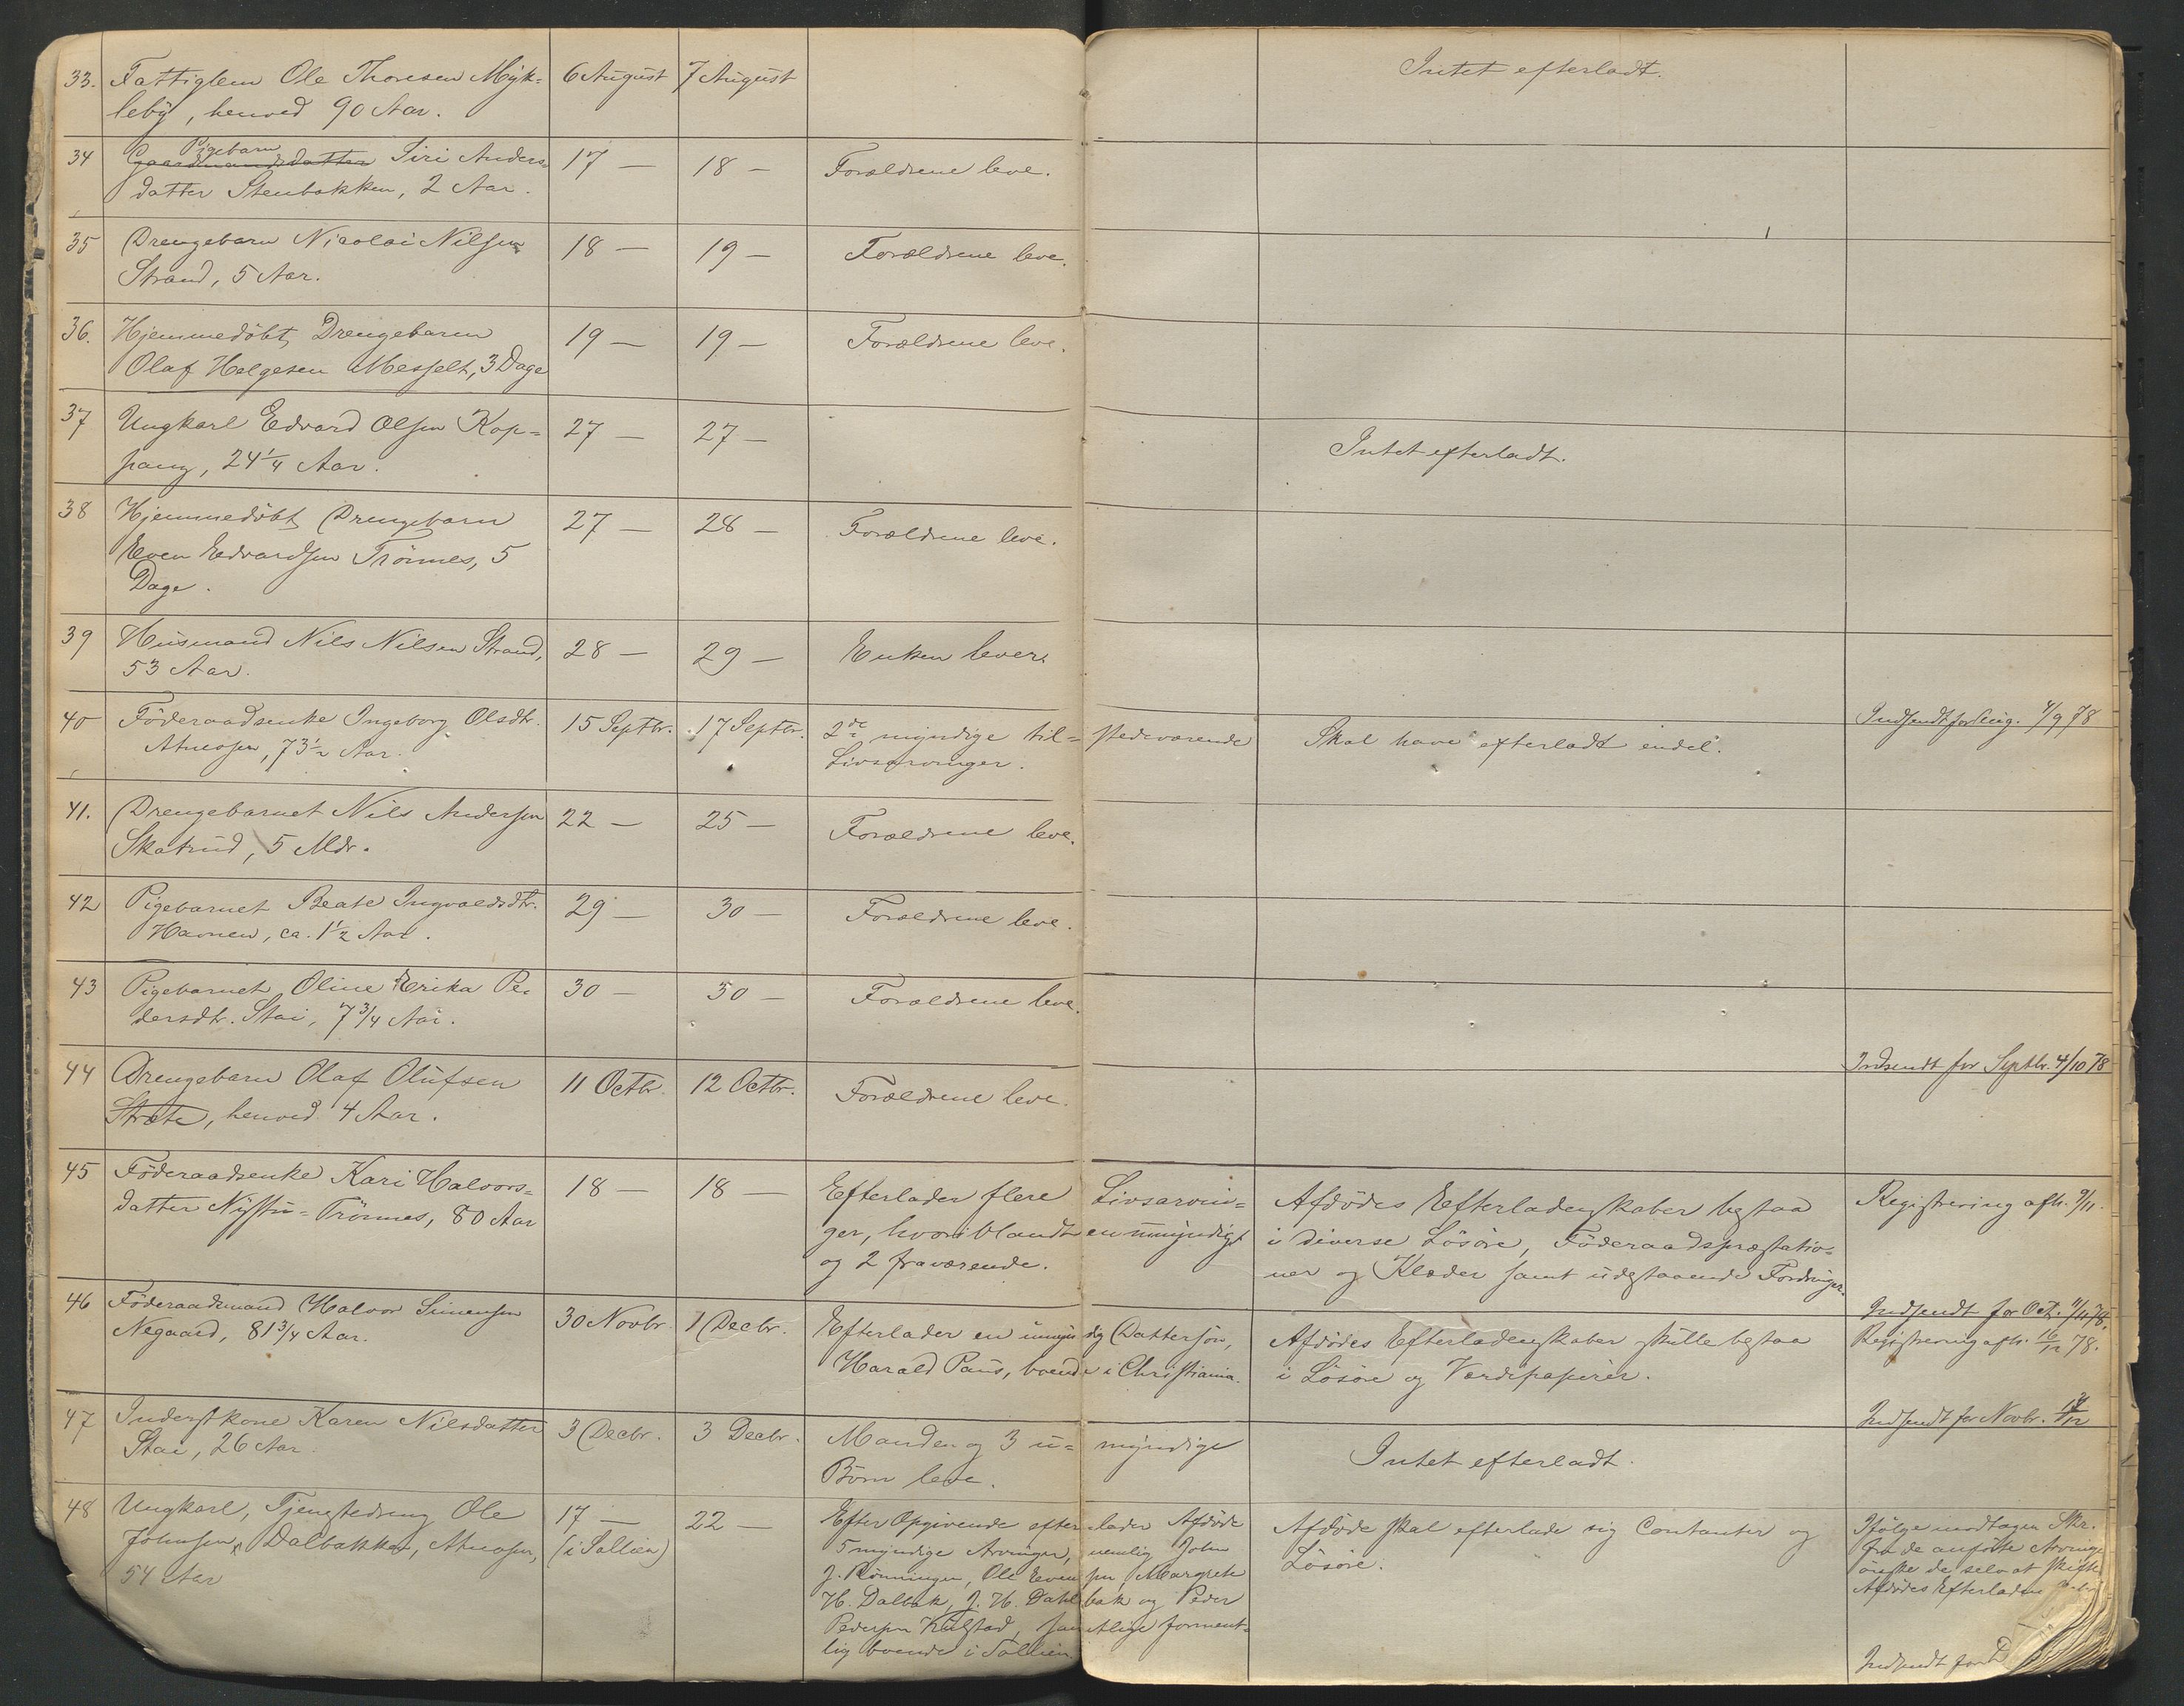 33. Fattiglem Ole Thoresen Myk= 6 August 7 August Intet efterladt.
leby, henved 90 Aar.
34 Pigebarn
Gaardmandsdatter Siri Anders= 17 — 18 — Forældrene leve.
datter Stenbakken, 2 Aar.
35 Drengebarn Nicolai Nilsen 18 — 19 — Forældrene leve.
Strand, 5 Aar.
36. Hjemmedöbt Drengebarn 19 — 19 — Forældrene leve.
Olaf Helgesen Messelt, 3 Dage
37 Ungkarl Edvard Olsen Kop= 27 — 27 — Intet efterladt.
pang, 24 1/4 Aar.
38 Hjemmedöbt Drengebarn 27 — 28 — Forældrene leve.
Even Edvardsen Trönnes, 5
Dage.
39 Husmand Nils Nilsen Strand, 28 — 29 — Enken lever.
53 Aar.
Indsendt for Aug. 4/9 78
40 Föderaadsenke Ingeborg Olsdtr. 15 Septbr. 17 Septbr. 2de myndige til= stedeværende Skal have efterladt endel.
Atneosen, 73 1/2 Aar. Livsarvinger.
41. Drengebarnet Nils Andersen 22 — 25 — Forældrene leve.
Skatrud, 5 Mdr.
42 Pigebarnet Beate Ingvaldsdtr. 29 — 30 — Forældrene leve.
Havnen, ca. 1 1/2 Aar.
43 Pigebarnet Oline Erika Pe= 30 — 30 — Forældrene leve.
dersdtr. Stai, 7 3/4 Aar.
Indsendt for Septbr. 4/10 78
44 Drengebarn Olaf Olufsen 11 Octbr. 12 Octbr. Forældrene leve.
Stræte, henved 4 Aar.
45 Föderaadsenke Kari Halvors= 18 — 18 — Efterlader flere Livsarvin= Afdödes Efterladenskaber bestaa Registrering afh. 9/11.
datter Nystu=Trönnes, 80 Aar ger, hvoriblandt en umyndig i diverse Lösöre, Föderaadspræstatio=
og 2 fraværende. ner og Klæder samt udestaaende Fordringer.
Indsendt for Oct. 11/11 78.
46 Föderaadsmand Halvor Simensen 30 Novbr. 1 Decbr. Efterlader en umyndig Dattersön, Afdödes Efterladenskaber skulle bestaa Registrering afh. 16/12 78.
Negaard, 81 3/4 Aar. Harald Paus, boende i Christiania. i Lösöre og Værdipapirer.
Indsendt for Novbr.
47 Inderstkone Karen Nilsdatter 3 Decbr. 3 Decbr. Manden og 3 u= myndige Intet efterladt.
Stai, 26 Aar. Börn leve.
48 Ungkarl, Tjenestedreng Ole 17 — 22 — Efter Opgivende efterlader Afdöde Afdöde skal efterlade sig Contanter og Ifölge modtagen Skr.
Johnsen Dalbakken, Atneosen, (i Sollien) 5 myndige Arvinger, nemlig John Lösöre. fra de anförte Arvinger
54 Aar J. Rönningen, Ole Evensen, Margrete önske de selv at skifte
H. Dalbak, J. H. Dahlbak og Peder Afdödes Efterladen
Pedersen Kulstad, samtlige forment=
lig boende i Sollien.
Indsendt for D